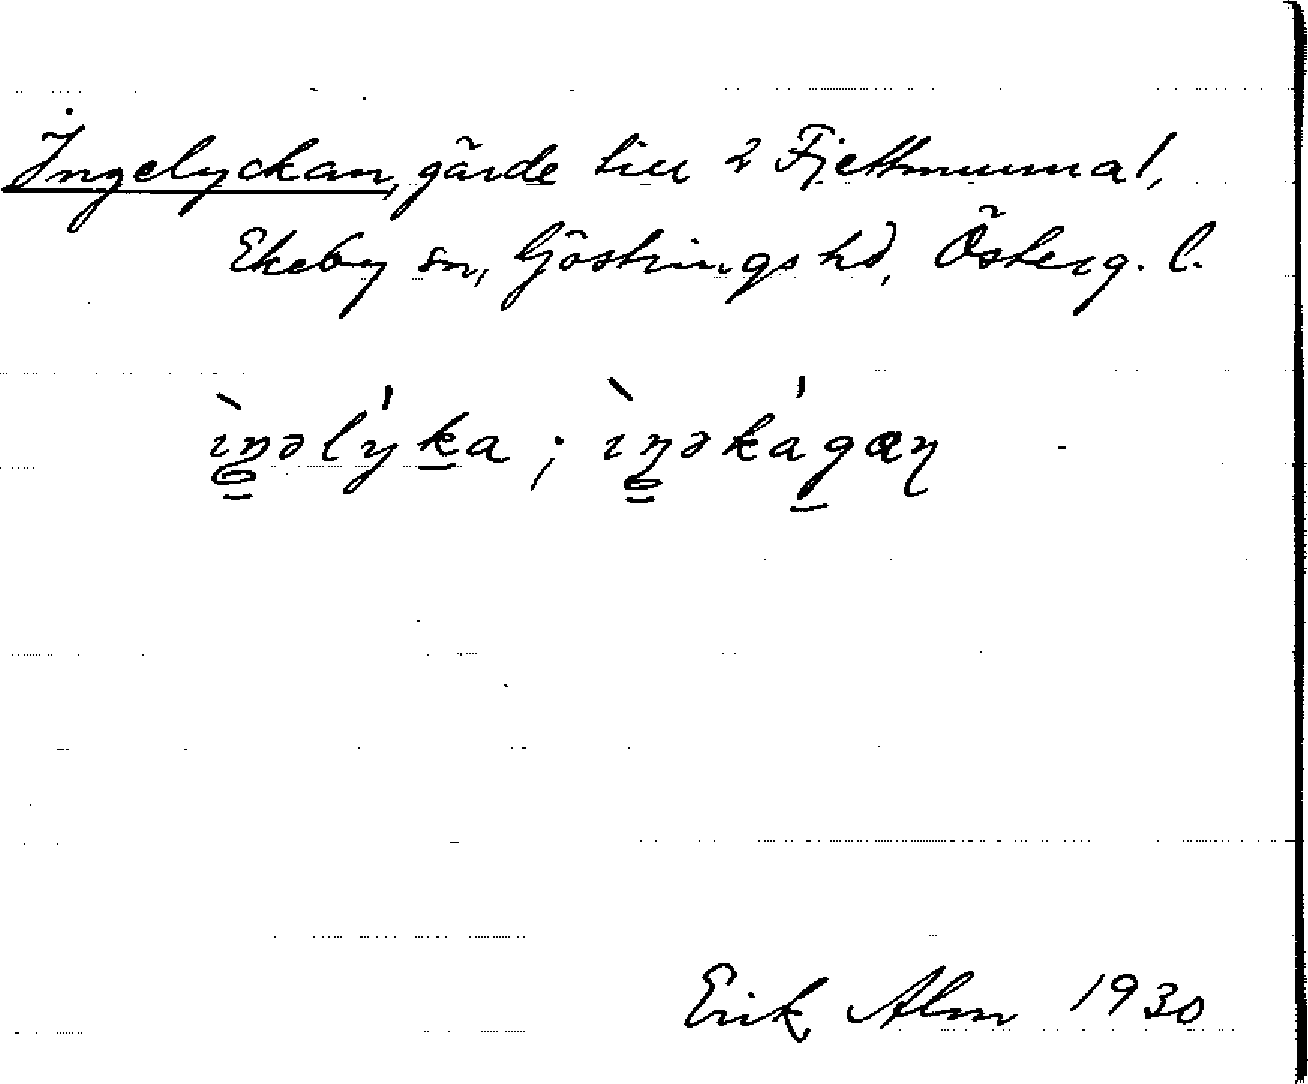 Ingelyckan, gärde till 2 Fjettmunna l,
Ekeby sn, Göstrings hd, Österg. l.
ìŋəlýka; ìŋəkágæn
Erik Alm 1930